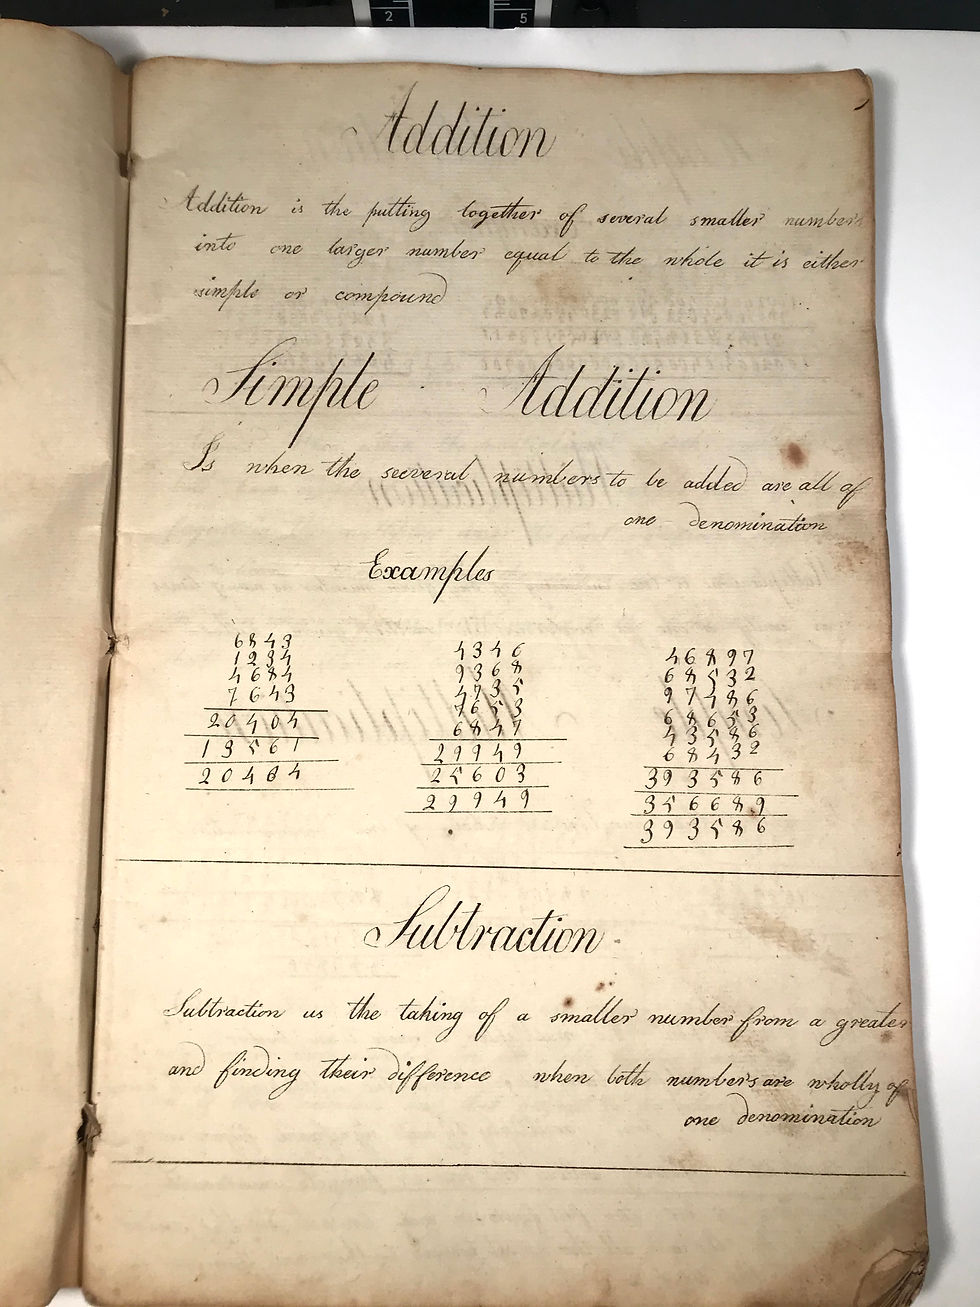 Addition
Addition is the putting together of several smaller numbers
into one larger number equal to the whole it is either
simple or compound
Simple Addition
Is when the seeveral numbers to be added are all of
one denomination
Examples
6843
1234
4684
7643
20404
13561
20404
4346
9368
1735
7653
6847
29949
25603
29949
46897
68532
97486
68653
43586
68432
393586
356689
393586
Subtraction
Subtraction us the taking of a smaller number from a greater
and finding their difference when both numbers are wholly of
one denomination
2
5